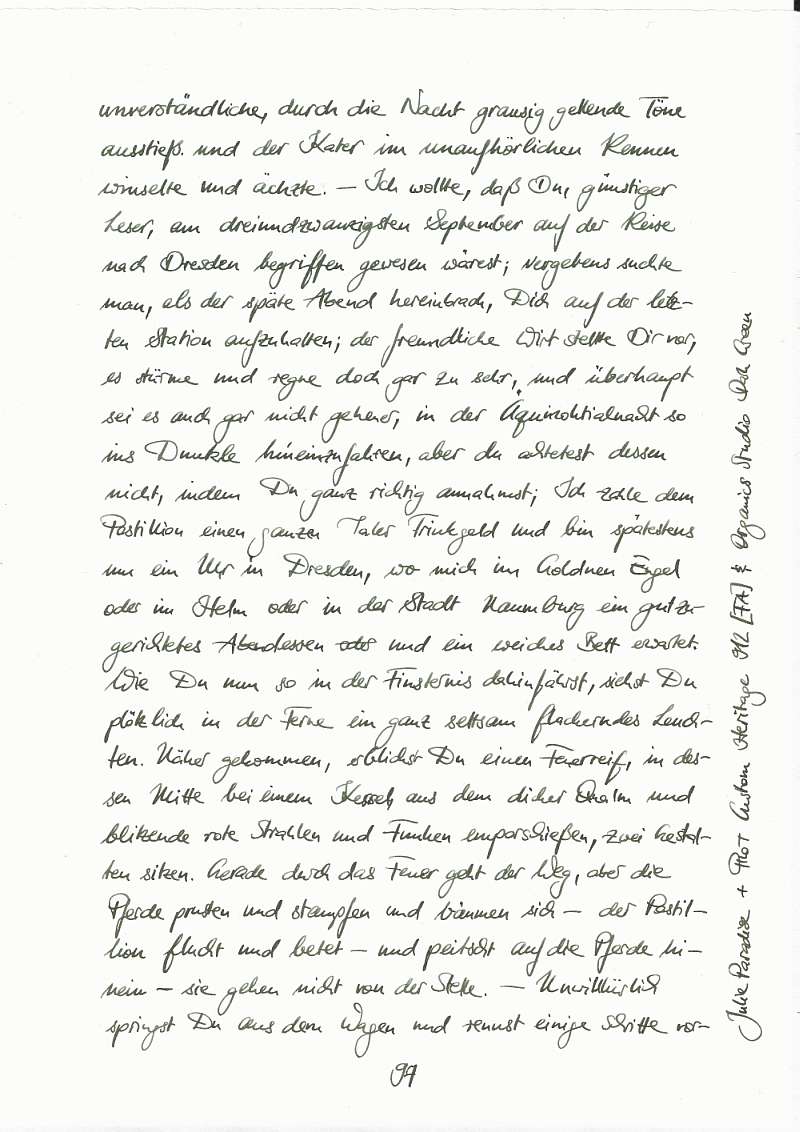 unverständliche, durch die Nacht grausig gellende Töne
ausstieß. und der Kater im unaufhörlichen Rennen
winselte und ächzte. — Ich wollte, daß Du, günstiger
Leser, am dreiundzwanzigsten September auf der Reise
nach Dresden begriffen gewesen wärest; vergebens suchte
man, als der späte Abend hereinbrach, Dich auf der letz-
ten Station aufzuhalten; der freundliche Wirt stellte Dir vor,
es stürme und regne doch gar zu sehr, und überhaupt
sei es auch gar nicht geheuer, in der Äquinoktialnacht so
ins Dunkle hineinzufahren, aber du achtetest dessen
nicht, indem Du ganz richtig annahmst; Ich zahle dem
Postillion einen ganzen Taler Trinkgeld und bin spätestens
um ein Uhr in Dresden, wo mich im Goldnen Engel
oder im Helm oder in der Stadt Naumburg ein gut zu-
gerichtetes Abendessen oder und ein weiches Bett erwartet.
Wie Du nun so in der Finsternis dahinfährst, siehst Du
plötzlich in der Ferne ein ganz seltsam flackerndes Leuch-
ten. Näher gekommen, erblickst Du einen Feuerreif, in des-
sen Mitte bei einem Kessel, aus dem dicker Qualm und
blitzende rote Strahlen und Funken emporschießen, zwei Gestal-
ten sitzen. Gerade durch das Feuer geht der Weg, aber die
Pferde prusten und stampfen und bäumen sich — der Postil-
lion flucht und betet — und peitscht auf die Pferde hi-
nein — sie gehen nicht von der Stelle. — Unwillkürlich
springst Du aus dem Wagen und rennst einige Schritte vor-
99
Julie Paradise + Pilot Custom Heritage 912 [FA] & Organics Studio Green